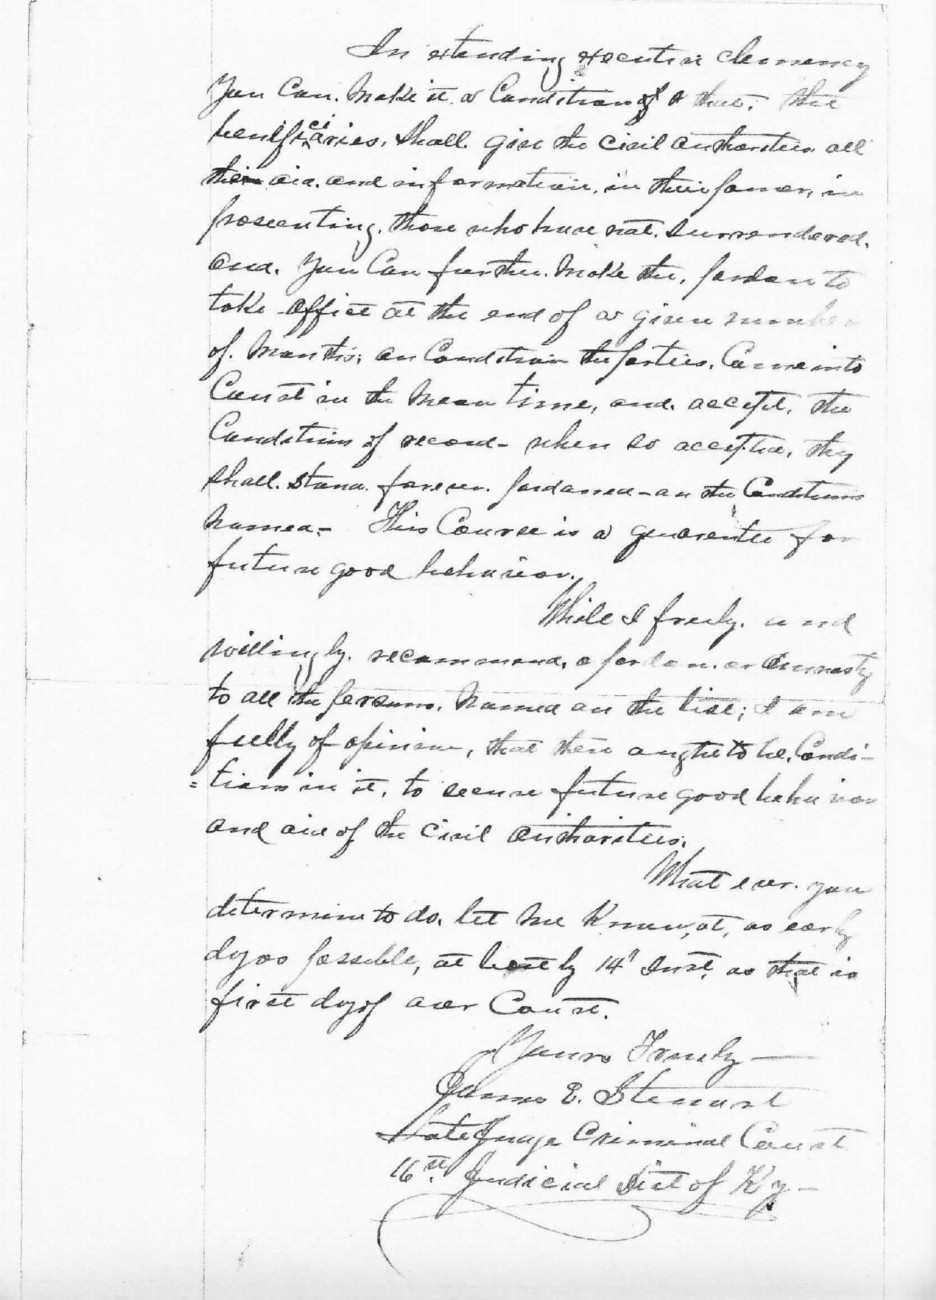 In extending executive clemency
You Can. Make it a Condition of that; the
beneficiaries, shall. give the civil authorities all
their aid. and information, in their power, in
prosecuting, those who have not. surrendered.
and. You Can further. Make the, pardon to
take effect at the end of a given number
of. Months; on Condition the parties, Come into
Court in the Mean time, and. accept, the
Conditions of record - when so accepted, they
shall. stand. forever. pardoned - on the Conditions
Named - This Course is a guarantee for
future good behavior.
While I freely. and
willingly. recommend, a pardon. or Amnesty
to all the persons. Named on the list; I am
fully of opinion, that there ought to be, Condi-
=tions in it, to secure future good behavior
and aid of the civil authorities.
What ever. you
determine to do, let me Know, at, as early
day as possible, at least by 14t Inst, as that is
first day of our Court.
Yours Truly —
James E. Stewart
Late Judge Criminal Court
16th. Judicial Dist of Ky —